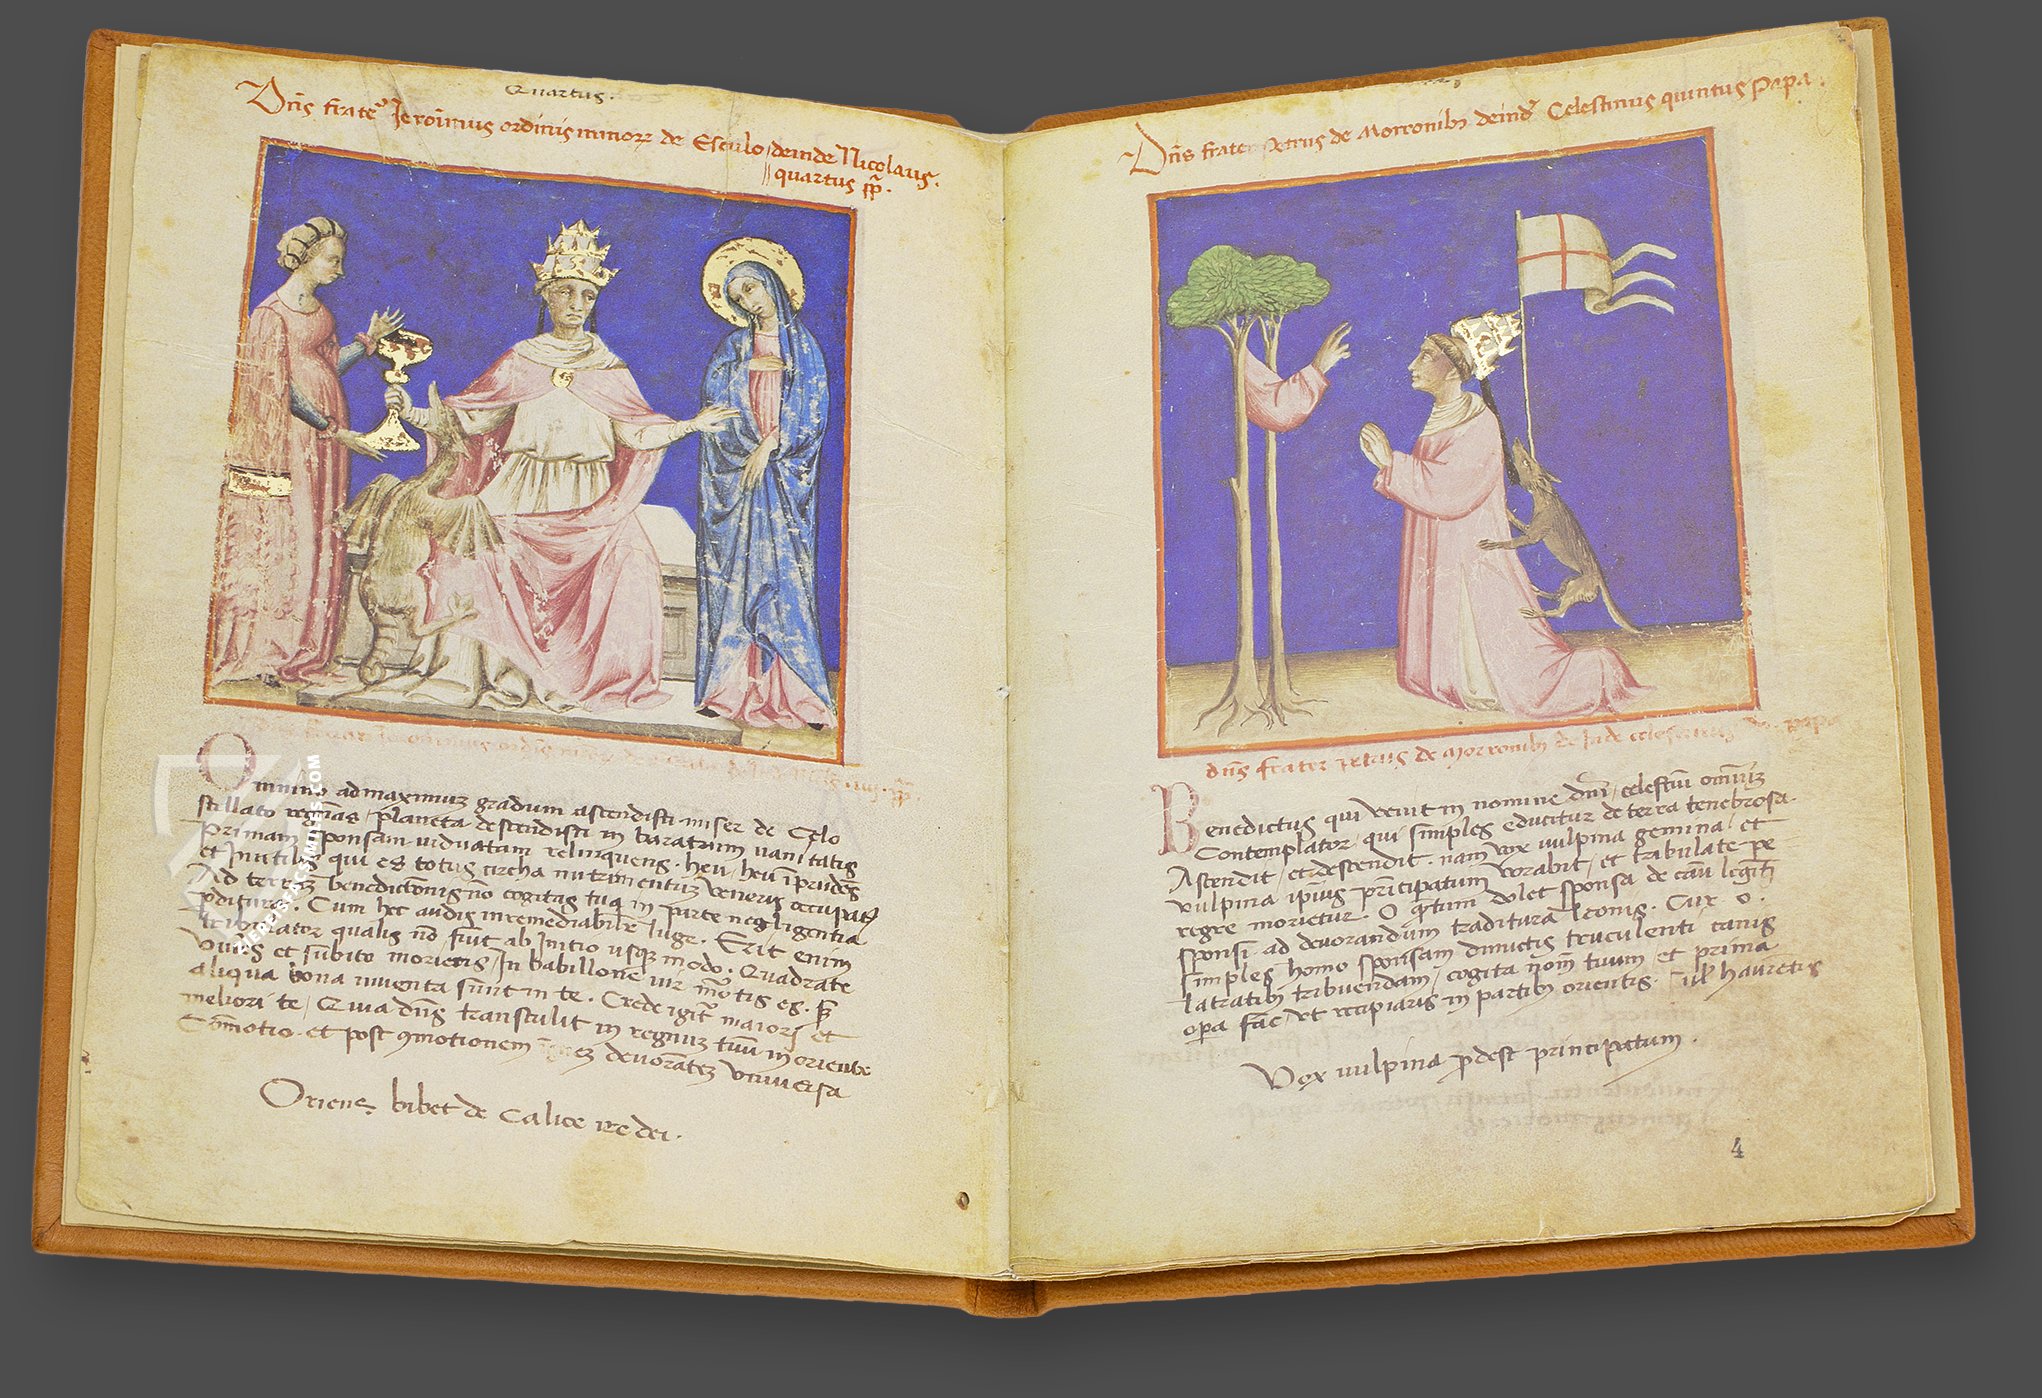 Quartus.
Dn̄s frate Jeronimus ordinis minorꝝ de Esculo deinde Nicolaus.
quartus pp̄.
Omnino ad maximuz gradum ascendisti miser de Celo
stillato regnās, planeta descendisti in baratrum vanitatis
Primam sponsam viduatam relinquens. heu, heu īprudēs
et Inutilis qui es totus circha nutrimentūz Veneris occupatꝯ
Ad terrēz benedictionis nō cogitas tuꝙ in parte negligentia
Cum hec audis irremediabilr̄ luge. Erit enim
tribulator qualis nō fūit ab Initio usqꝫ modo. Quadrate
Viues et subito morieris, In babillone vir mōtis es. 
aliqua bona inuenta sūnt in te. Crede igit̄ maiori et
meliori te, Quia dn̄s transtulit in regnuz tuū in oriente
Cōmotio. et post ꝯmotionem deuorātez vniuersa
Oriens. bibet de Calice ire dei.
HERITAGEACSIMILES.COM
Dn̄s frater Petrus de Morronibꝫ deinde Celestinus quintus Papa.
dn̄s frater petrus de Morronibꝫ de Inde celestinus papa
Benedictus qui venit in nomine dn̄i, celestiū omniūz
Contemplator, qui simplex educitur de terra tenebrosa.
Ascendit, et descendit. nam vox vulpina gemina, et
vulpina ipsius principatum vorabit, et tribulate pe
regre morietur. O q̄tum dolet sponsa de cāu legit̄i
sponsi ad deuorandum traditura leonis. Cur. o.
simplex homo sponsam dimictis truculenti canis
latratibꝫ tribuendam, cogita nom̄ tuum et prima
opera fac, vt recipiaris in partibꝫ orientis. hauretis
Vox vulpina ꝑdest principatum.
4